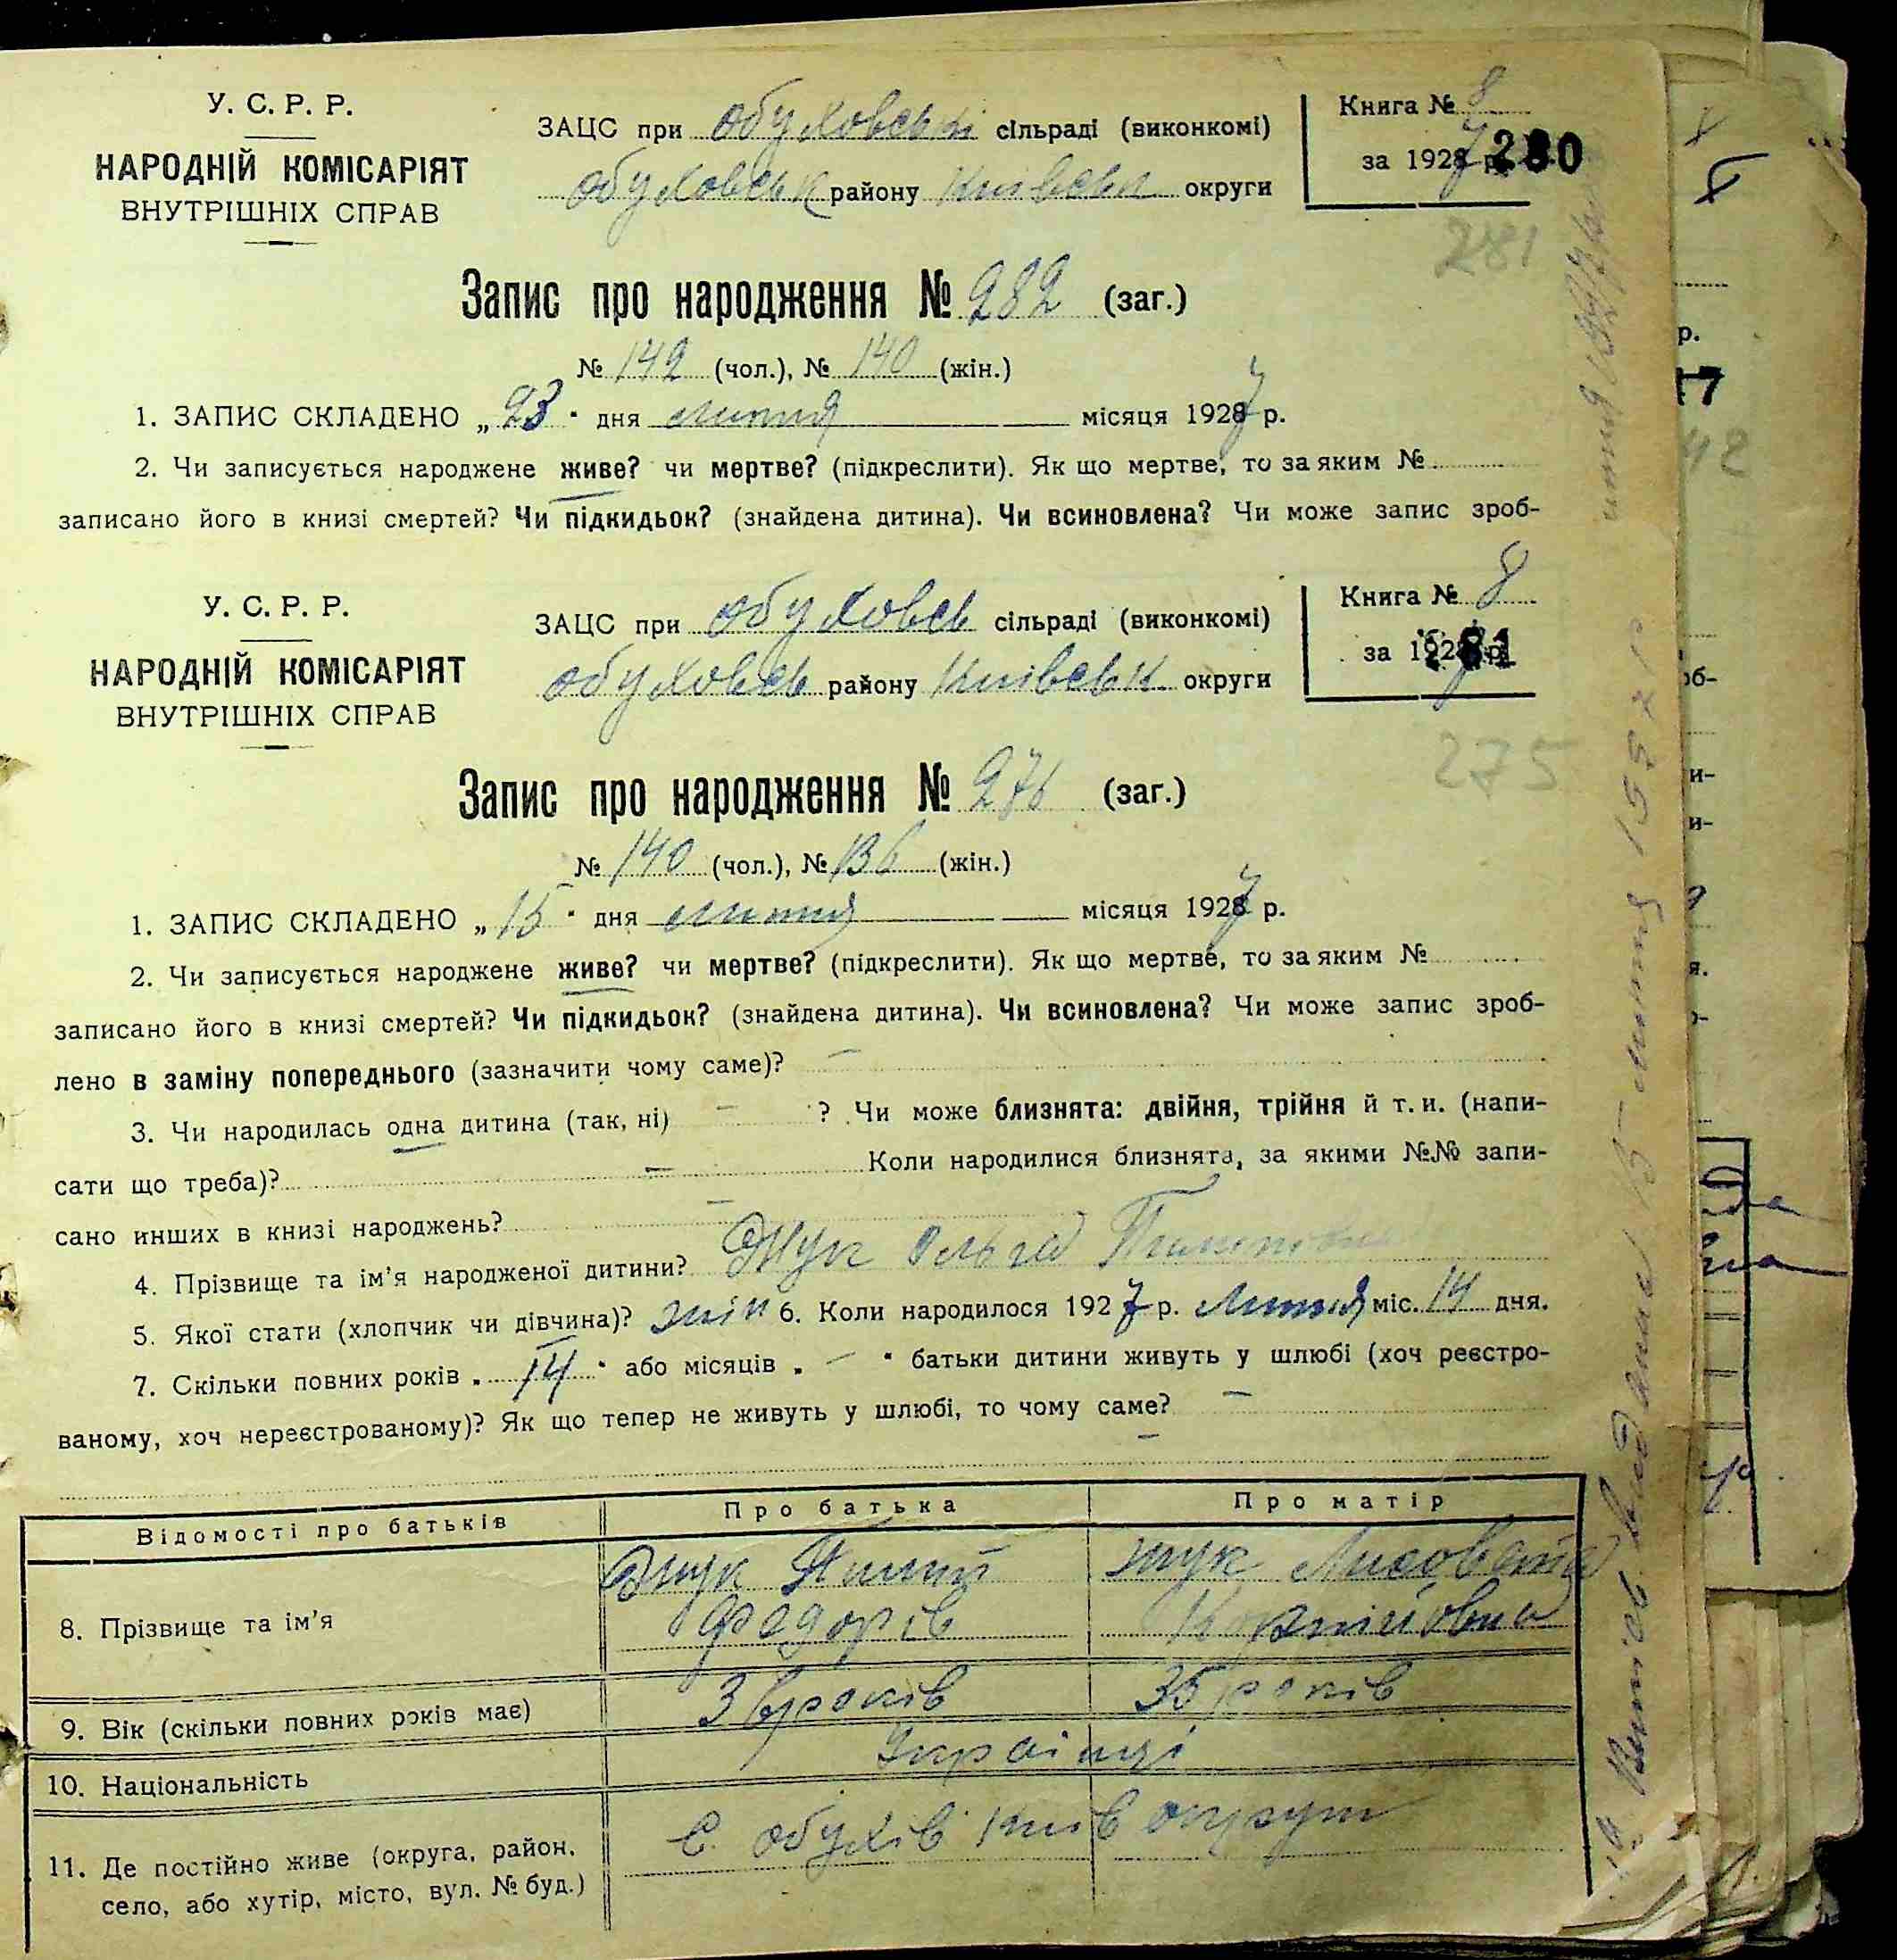 У. С. Р. Р.
НАРОДНІЙ КОМІСАРІЯТ
ВНУТРІШНІХ СПРАВ
ЗАЦС при обуховській сільраді (виконкомі)
обуховськ району Київськ округи
Книга № 8
за 1927 р. 280
281
Запис про народження № 282 (заг.)
№ 142 (чол.), № 140 (жін.)
1. ЗАПИС СКЛАДЕНО „23" дня липня місяця 1927 р.
2. Чи записується народжене живе? чи мертве? (підкреслити). Як що мертве, то за яким №
записано його в книзі смертей? Чи підкидьок? (знайдена дитина). Чи всиновлена? Чи може запис зроб-
У. С. Р. Р.
НАРОДНІЙ КОМІСАРІЯТ
ВНУТРІШНІХ СПРАВ
ЗАЦС при обуховсь сільраді (виконкомі)
обуховсь району Київськ округи
Книга № 8
за 1927 р. 281
275
Запис про народження № 276 (заг.)
№ 140 (чол.), № 136 (жін.)
1. ЗАПИС СКЛАДЕНО „15" дня липня місяця 1927 р.
2. Чи записується народжене живе? чи мертве? (підкреслити). Як що мертве, то за яким №
записано його в книзі смертей? Чи підкидьок? (знайдена дитина). Чи всиновлена? Чи може запис зроб-
лено в заміну попереднього (зазначити чому саме)? —
3. Чи народилась одна дитина (так, ні) — ? Чи може близнята: двійня, трійня й т. и. (напи-
сати що треба)? — Коли народилися близнята, за якими №№ запи-
сано инших в книзі народжень? —
4. Прізвище та ім'я народженої дитини? Жук Ольга
5. Якої стати (хлопчик чи дівчина)? жін 6. Коли народилося 1927 р. липня міс. 14 дня.
7. Скільки повних років „14" або місяців „—" батьки дитини живуть у шлюбі (хоч реєстро-
ваному, хоч нереєстрованому)? Як що тепер не живуть у шлюбі, то чому саме? —
—
Відомості про батьків
Про батька
Про матір
8. Прізвище та ім'я
Жук Пилип
Федорів
жук Лисовета
9. Вік (скільки повних років має)
36 років
35 років
10. Національність
Українці
11. Де постійно живе (округа, район,
село, або хутір, місто, вул. № буд.)
С. обухів Київ округи